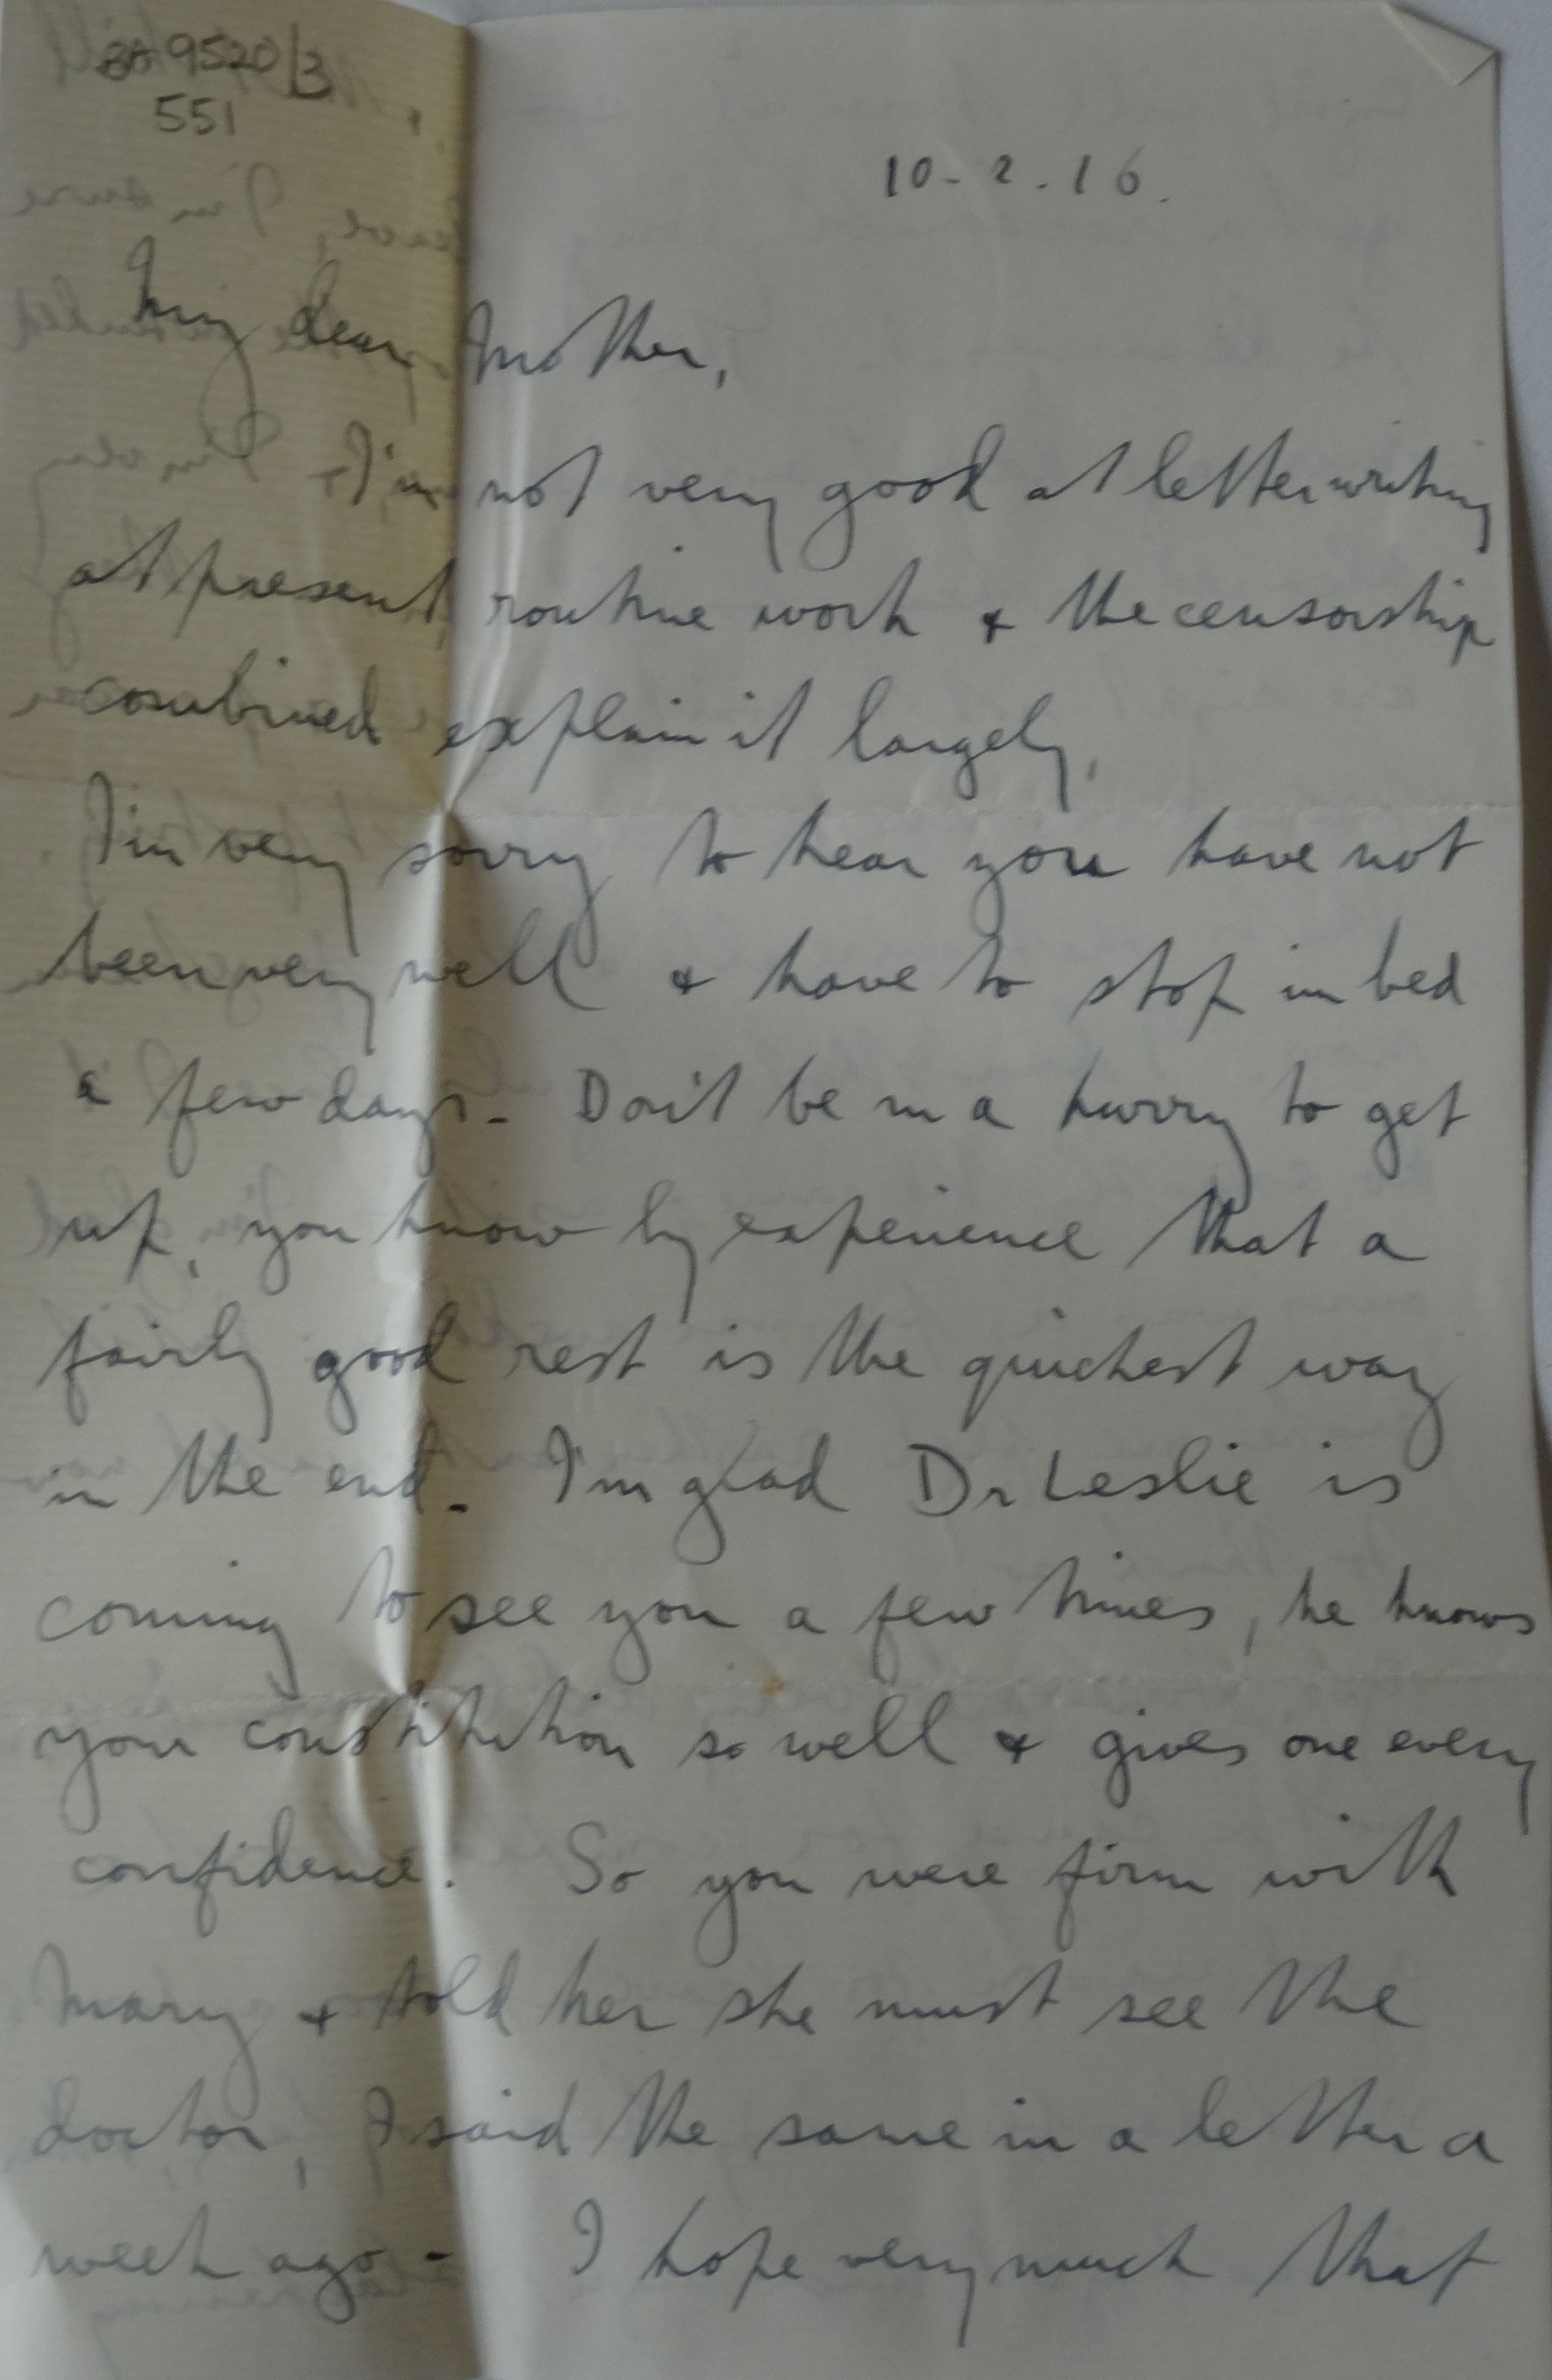 BA 9520/3
551
10-2.16.
My dear Mother,
I'm not very good at letter writing
at present, routine work & the censorship
combined explain it largely.
I'm very sorry to hear you have not
been very well & have to stop in bed
a few days. Don't be in a hurry to get
up, you know by experience that a
fairly good rest is the quickest way
in the end. I'm glad Dr Leslie is
coming to see you a few times, he knows
your constitution so well & gives one every
confidence. So you were firm with
Mary & told her she must see the
doctor, I said the same in a letter a
week ago - I hope very much that